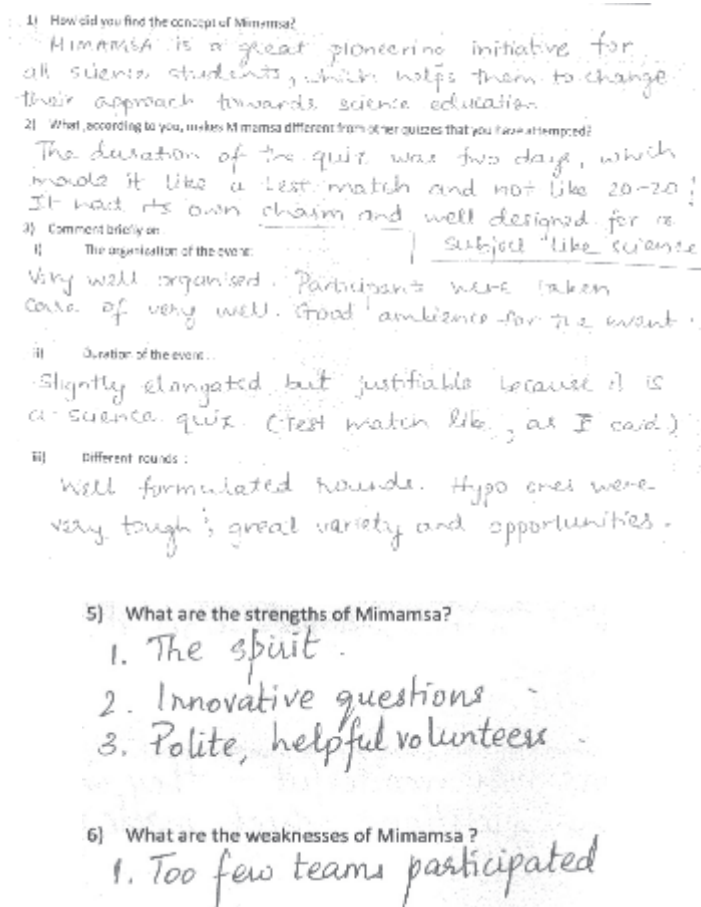 1) How did you find the concept of Mimamsa?
MIMAMSA is a great pioneering initiative for
all science students, which helps them to change
their approach towards science education
2) What ,according to you, makes Mimamsa different from other quizzes that you have attempted?
The duration of the quiz was two days, which
made it like a test match and not like 20-20!
It had its own charm and well designed for a
subject like science
3) Comment briefly on
i) The organisation of the event:
Very well organised. Participants were taken
care of very well. Good ambience for the event.
ii) Duration of the event..
Slightly elongated but justifiable because it is
a science quiz. (Test match like, as I said)
iii) Different rounds :
Well formulated rounds. Hypo ones were
very tough; great variety and opportunities.
5) What are the strengths of Mimamsa?
1. The spirit.
2. Innovative questions
3. Polite, helpful volunteers
6) What are the weaknesses of Mimamsa ?
1. Too few teams participated